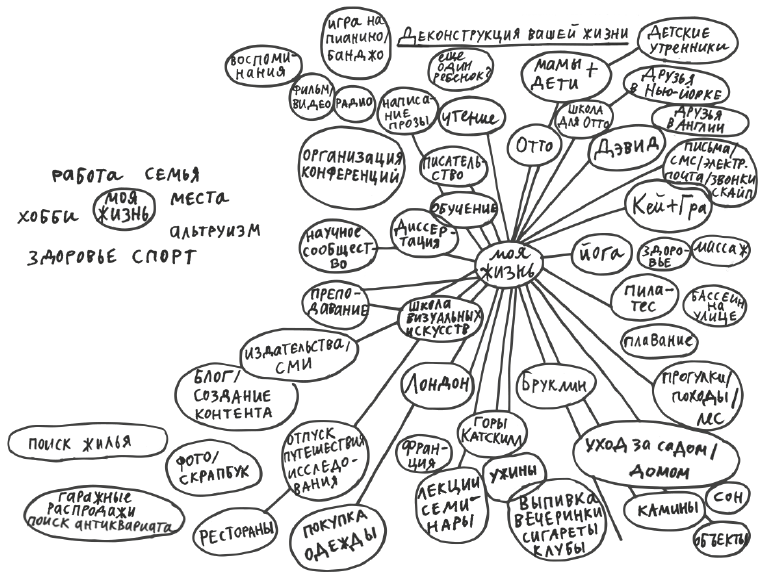 Деконструкция вашей жизни
игра на
пианино/
банджо
воспоми-
нания
фильм/
видео
радио
написа-
ние
прозы
еще
один
ребенок?
чтение
мамы +
дети
детские
утренники
школа
для Отто
друзья
в Нью-Йорке
друзья
в Англии
Отто
Дэвид
письма/
смс/электр.
почта/звонки
скайп
Кей+Гра
организация
конференций
писатель-
ство
обучение
научное
сообщест-
во
диссер-
тация
моя
жизнь
йога
здоро-
вье
массаж
препо-
давание
школа
визуальных
искусств
пила-
тес
бассейн
на
улице
плавание
издательства/
сми
блог/
создание
контента
Лондон
Бруклин
прогулки/
походы/
лес
поиск жилья
фото/
скрапбук
отпуск
путешествия
исследо-
вания
Фран-
ция
горы
Катскилл
ужины
уход за садом/
домом
гаражные
распродажи
поиск антиквариата
рестораны
покупка
одежды
лекции
семи-
нары
выпивка
вечеринки
сигареты
клубы
камины
сон
объекты
работа семья
хобби
моя
жизнь
места
альтруизм
здоровье спорт